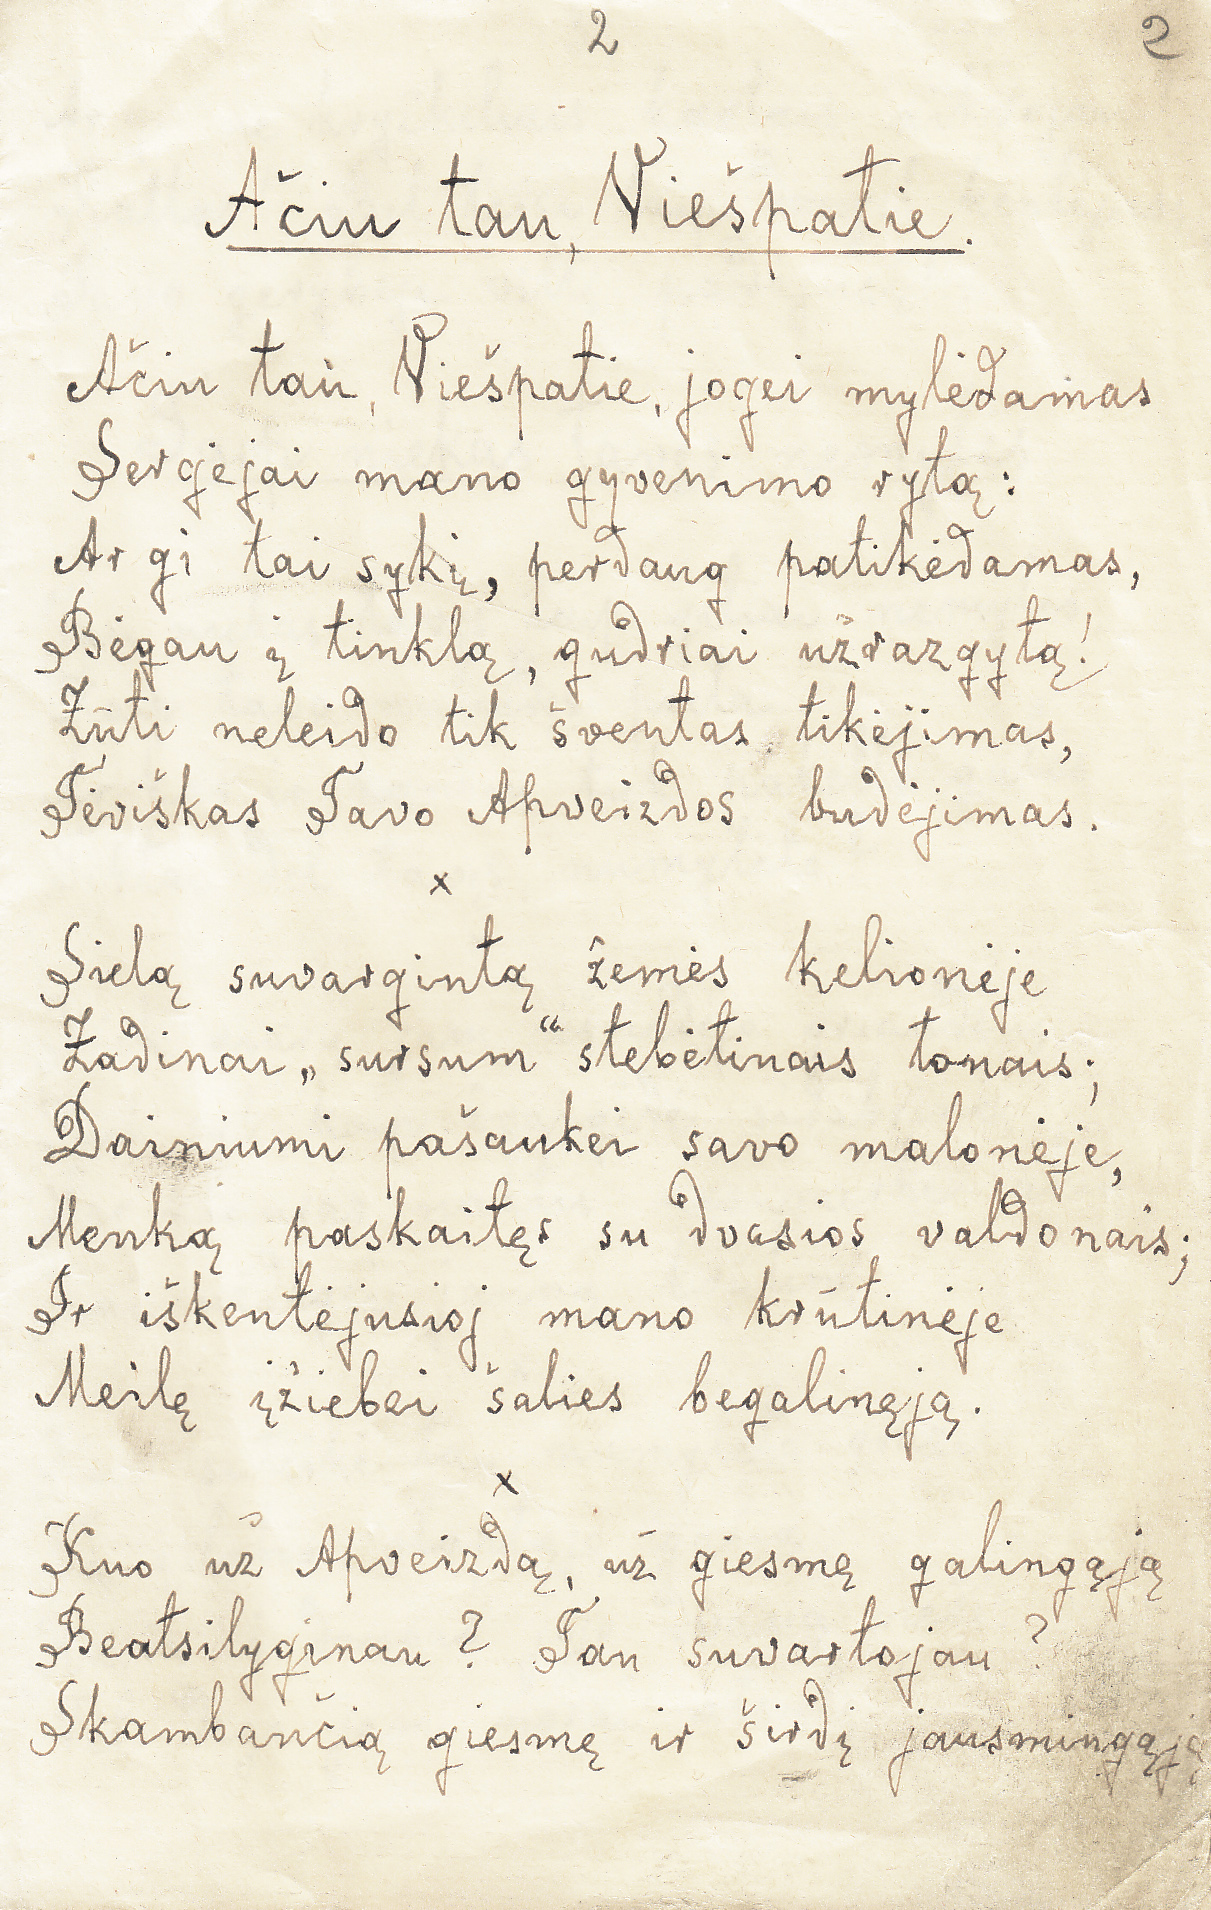 2 2
Ačiu tau, Viešpatie.
Ačiu tau, Viešpatie, jogei mylėdamas
Sergėjai mano gyvenimo rytą:
Ar gi tai sykį, perdaug patikėdamas,
Bėgau į tinklą, gudriai užrazgytą!
Žūti neleido tik šventas tikėjimas,
Tėviškas Tavo Apveizdos budėjimas.
x
Sielą suvargintą žemės kelionėje
Žadinai „sursum“ stebėtinais tonais;
Dainiumi pašaukei savo malonėje,
Menką paskaitęs su dvasios valdonais;
Ir iškentėjusioj mano krūtinėje
Meilę įžiebei šalies begalinęją.
x
Kuo už Apveizdą, už giesmę galingąją
Beatsilyginau? Tau suvartojau?
Skambančią giesmę ir širdį jausmingąją